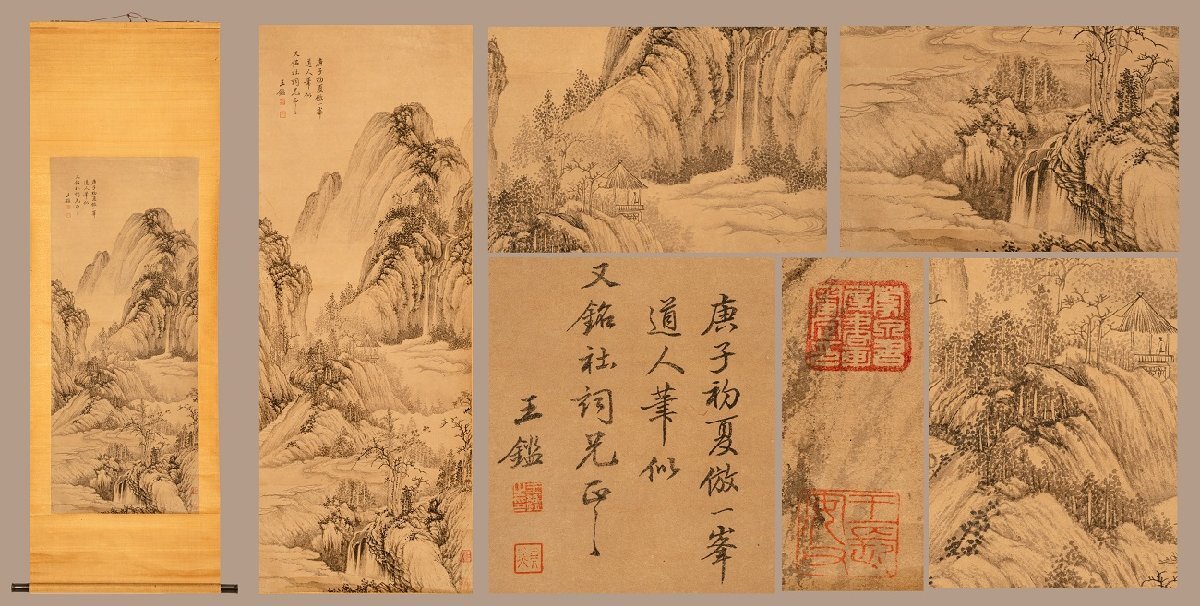 庚子初夏倣一峯
道人筆似
又銘社詞兄正
王鑑